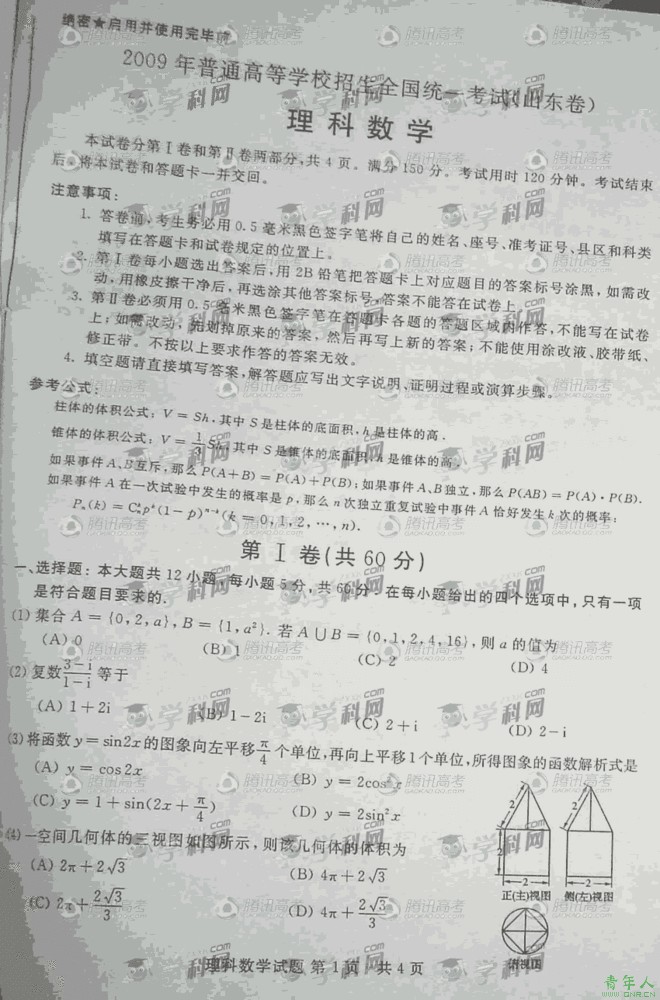 绝密★启用并使用完毕前
2009 年普通高等学校招生全国统一考试(山东卷)
理科数学
本试卷分第Ⅰ卷和第Ⅱ卷两部分,共 4 页。满分 150 分。考试用时 120 分钟。考试结束
后,将本试卷和答题卡一并交回。
注意事项:
1. 答卷前,考生务必用 0.5 毫米黑色签字笔将自己的姓名、座号、准考证号、县区和科类
填写在答题卡和试卷规定的位置上。
2. 第Ⅰ卷每小题选出答案后,用 2B 铅笔把答题卡上对应题目的答案标号涂黑,如需改
动,用橡皮擦干净后,再选涂其他答案标号,答案不能答在试卷上。
3. 第Ⅱ卷必须用 0.5 毫米黑色签字笔在答题卡各题的答题区域内作答,不能写在试卷
上;如需改动,先划掉原来的答案,然后再写上新的答案;不能使用涂改液、胶带纸、
修正带。不按以上要求作答的答案无效。
4. 填空题请直接填写答案,解答题应写出文字说明、证明过程或演算步骤。
参考公式:
柱体的体积公式:V = Sh,其中 S 是柱体的底面积,h 是柱体的高.
锥体的体积公式:V = 1/3 Sh,其中 S 是锥体的底面积,h 是锥体的高.
如果事件 A、B 互斥,那么 P(A+B) = P(A)+P(B);如果事件 A、B 独立,那么 P(AB) = P(A)·P(B).
如果事件 A 在一次试验中发生的概率是 p,那么 n 次独立重复试验中事件 A 恰好发生 k 次的概率:
Pₙ(k) = Cₙᵏpᵏ(1−p)ⁿ⁻ᵏ(k = 0,1,2,…,n).
第 Ⅰ 卷(共 60 分)
一、选择题:本大题共 12 小题,每小题 5 分,共 60 分.在每小题给出的四个选项中,只有一项
是符合题目要求的.
(1) 集合 A = {0,2,a},B = {1,a²}.若 A∪B = {0,1,2,4,16},则 a 的值为
(A) 0 (B) 1 (C) 2 (D) 4
(2) 复数 (3−i)/(1−i) 等于
(A) 1+2i (B) 1−2i (C) 2+i (D) 2−i
(3) 将函数 y = sin2x 的图象向左平移 π/4 个单位,再向上平移 1 个单位,所得图象的函数解析式是
(A) y = cos2x (B) y = 2cos²x
(C) y = 1+sin(2x+π/4) (D) y = 2sin²x
(4) 一空间几何体的三视图如图所示,则该几何体的体积为
(A) 2π+2√3 (B) 4π+2√3
(C) 2π+2√3/3 (D) 4π+2√3/3
2 2
2
2 2
正(主)视图 侧(左)视图
俯视图
理科数学试题 第 1 页 共 4 页
学科网
腾讯高考
GAOKAO.QQ.COM
青年人
WWW.QNR.CN